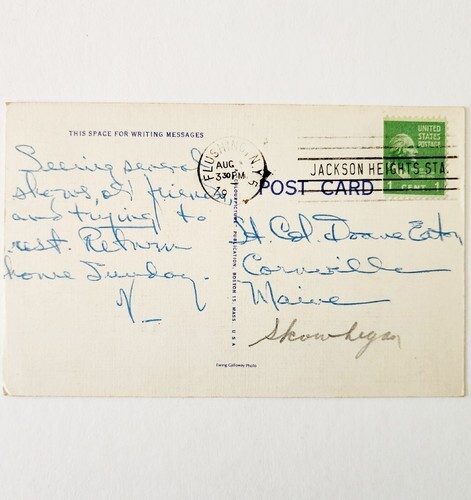 THIS SPACE FOR WRITING MESSAGES
Seeing several
shows, old friends
and trying to
rest. Return
home Sunday.
N—
FLUSHING, N.Y.
AUG
3 30 PM
JACKSON HEIGHTS STA.
UNITED
STATES
POSTAGE
1 CENT 1
POST CARD
Lt. Col. Doane Eaton
Cornville
Maine
Skowhegan
PUBLICATION, BOSTON 15, MASS., U.S.A.
Ewing Galloway Photo